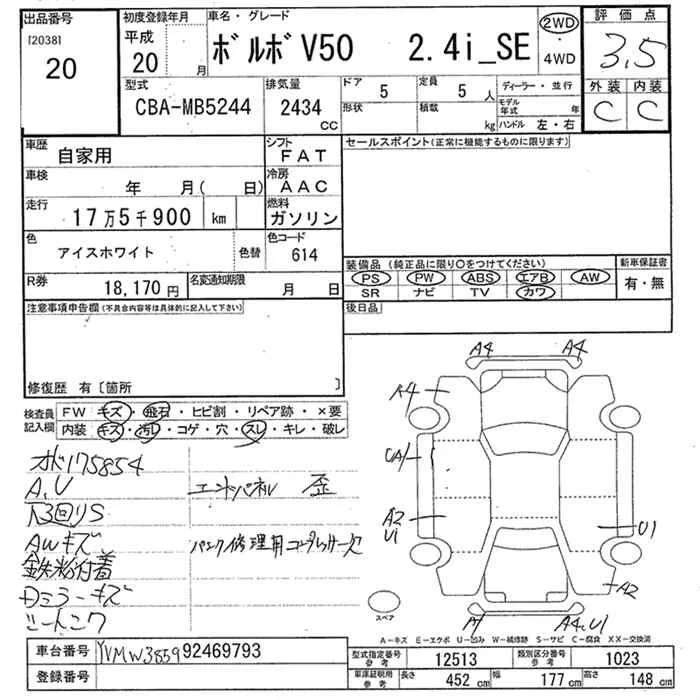 出品番号
[2038]
20
初度登録年月
平成
20 月
車名・グレード
ボルボ V50 2.4i_SE
2WD
・
4WD
評価点
3.5
外装 内装
C C
型式
CBA-MB5244
排気量
2434
CC
ドア 5
形状
定員 5 人
積載 kg
ディーラー・並行
モデル年式 年
ハンドル 左・右
車歴
自家用
シフト
FAT
車検
年 月( 日)
冷房
AAC
走行
17万5千900 km
燃料
ガソリン
色
アイスホワイト
色替
色コード
614
R券
18,170円
名変通知期限
月 日
セールスポイント(正常に機能するものに限ります)
装備品 (純正品に限り○をつけてください)
PS PW ABS エアB AW
SR ナビ TV カワ
新車保証書
有・無
後日品
注意事項申告欄(不具合内容等は具体的に記入して下さい)
修復歴 有〔箇所 〕
検査員
記入欄
FW キズ・飛石・ヒビ割・リペア跡・×要
内装 キズ・汚レ・コゲ・穴・スレ・キレ・破レ
175854
A.U
エンドパネル 歪
AWキズ
パンク修理用コンプレッサー欠
鉄粉付着
Dミラーキズ
A4 A4
A4
UA1
A2
U1
U1
A2
A1
A4.U1
スペア
A-キズ E-エクボ U-凹み W-補修跡 S-サビ C-腐食 XX-交換済
車台番号
YVMW3859 92469793
登録番号
型式指定番号
参考
12513
類別区分番号
参考
1023
車庫証明用
参考
長さ
452 cm
幅
177 cm
高さ
148 cm